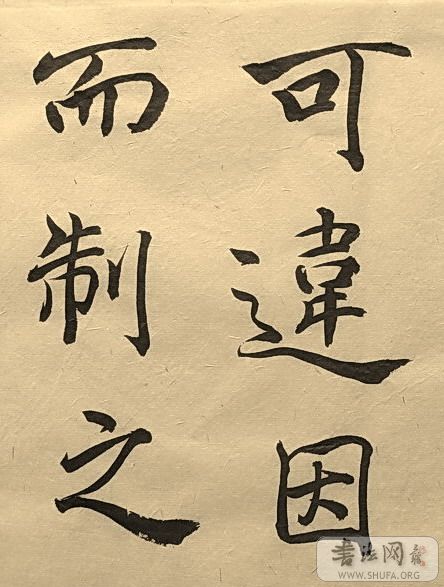 可違因
而制之
書法网
WWW.SHUFA.ORG